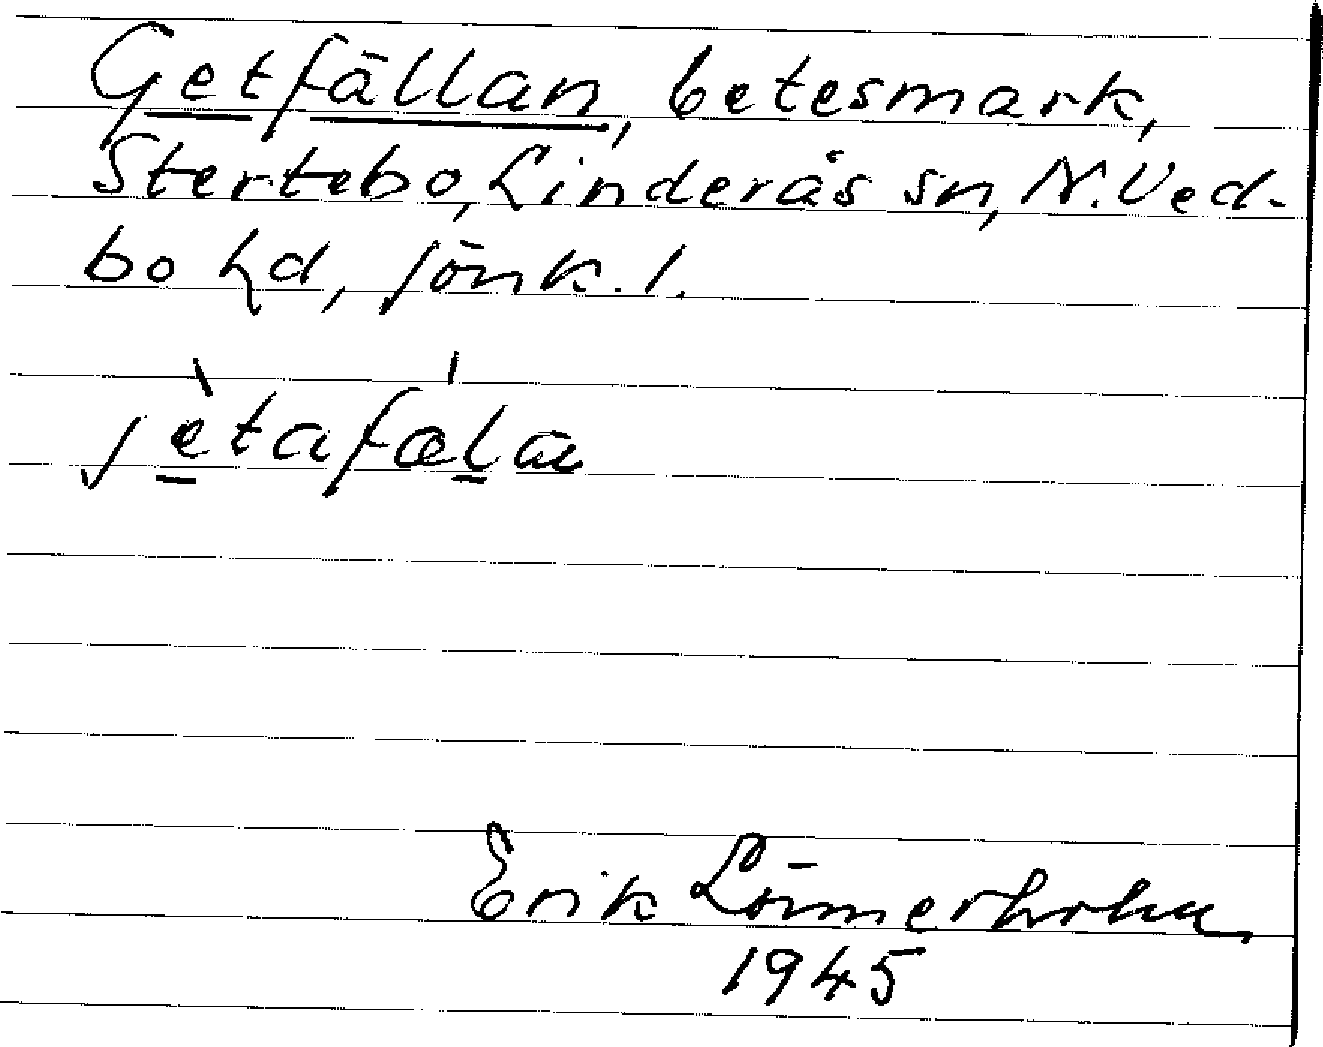 Getfällan, betesmark,
Stertebo, Linderås sn, N. Ved-
bo hd, Jönk. l.
jètafælan
Erik Lönnerholm
1945